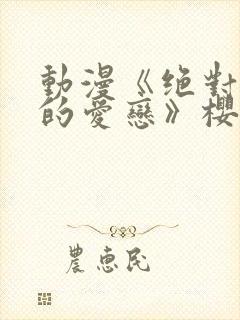 動漫《绝對
的愛戀》櫻
農惠民